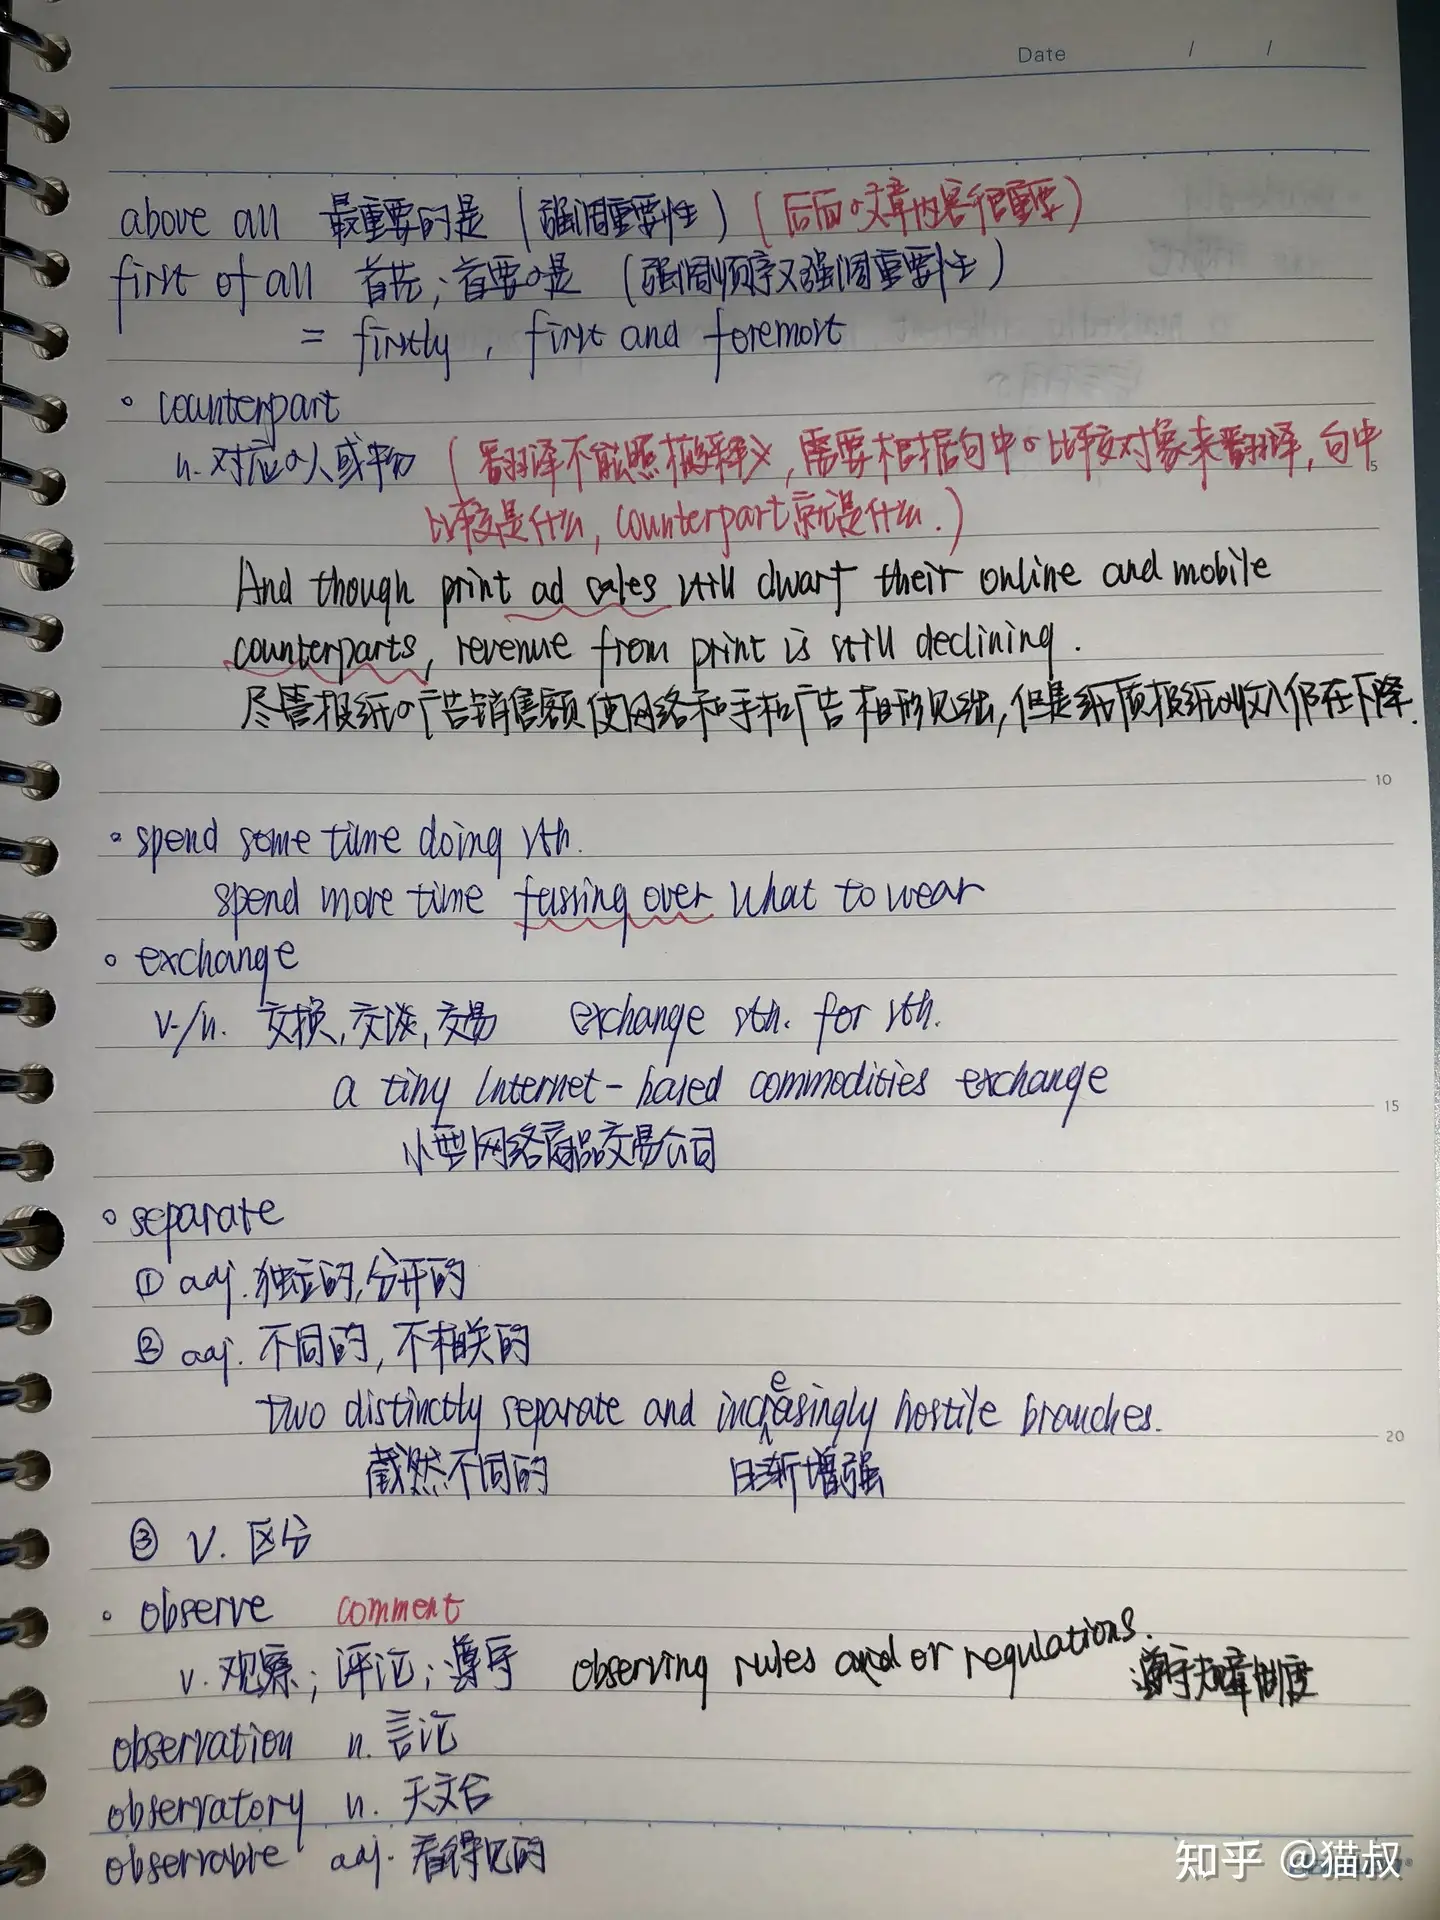 Date / /
above all 最重要的是 (强调重要性) (后面的文章内容很重要)
first of all 首先;首要的是 (强调顺序又强调重要性)
= firstly, first and foremost
。counterpart
n. 对应的人或物 (翻译不能照搬释义,需要根据句中的比较对象来翻译,句中
5
比较是什么, counterpart就是什么.)
And though print ad sales still dwarf their online and mobile
counterparts, revenue from print is still declining.
尽管报纸的广告销售额使网络和手机广告相形见绌,但是纸质报纸的收入仍在下降.
10
。spend some time doing sth.
spend more time fussing over what to wear
。exchange
v./n. 交换,交谈,交易 exchange sth. for sth.
a tiny Internet-based commodities exchange
15
小型网络商品交易公司
。separate
① adj. 独立的,分开的
② adj. 不同的,不相关的
two distinctly separate and increasingly hostile branches.
20
截然不同的 日渐增强
③ v. 区分
。observe comment
v. 观察;评论;遵守 observing rules and or regulations.
遵守规章制度
observation n. 言论
observatory n. 天文台
observable adj. 看得见的
知乎 @猫叔